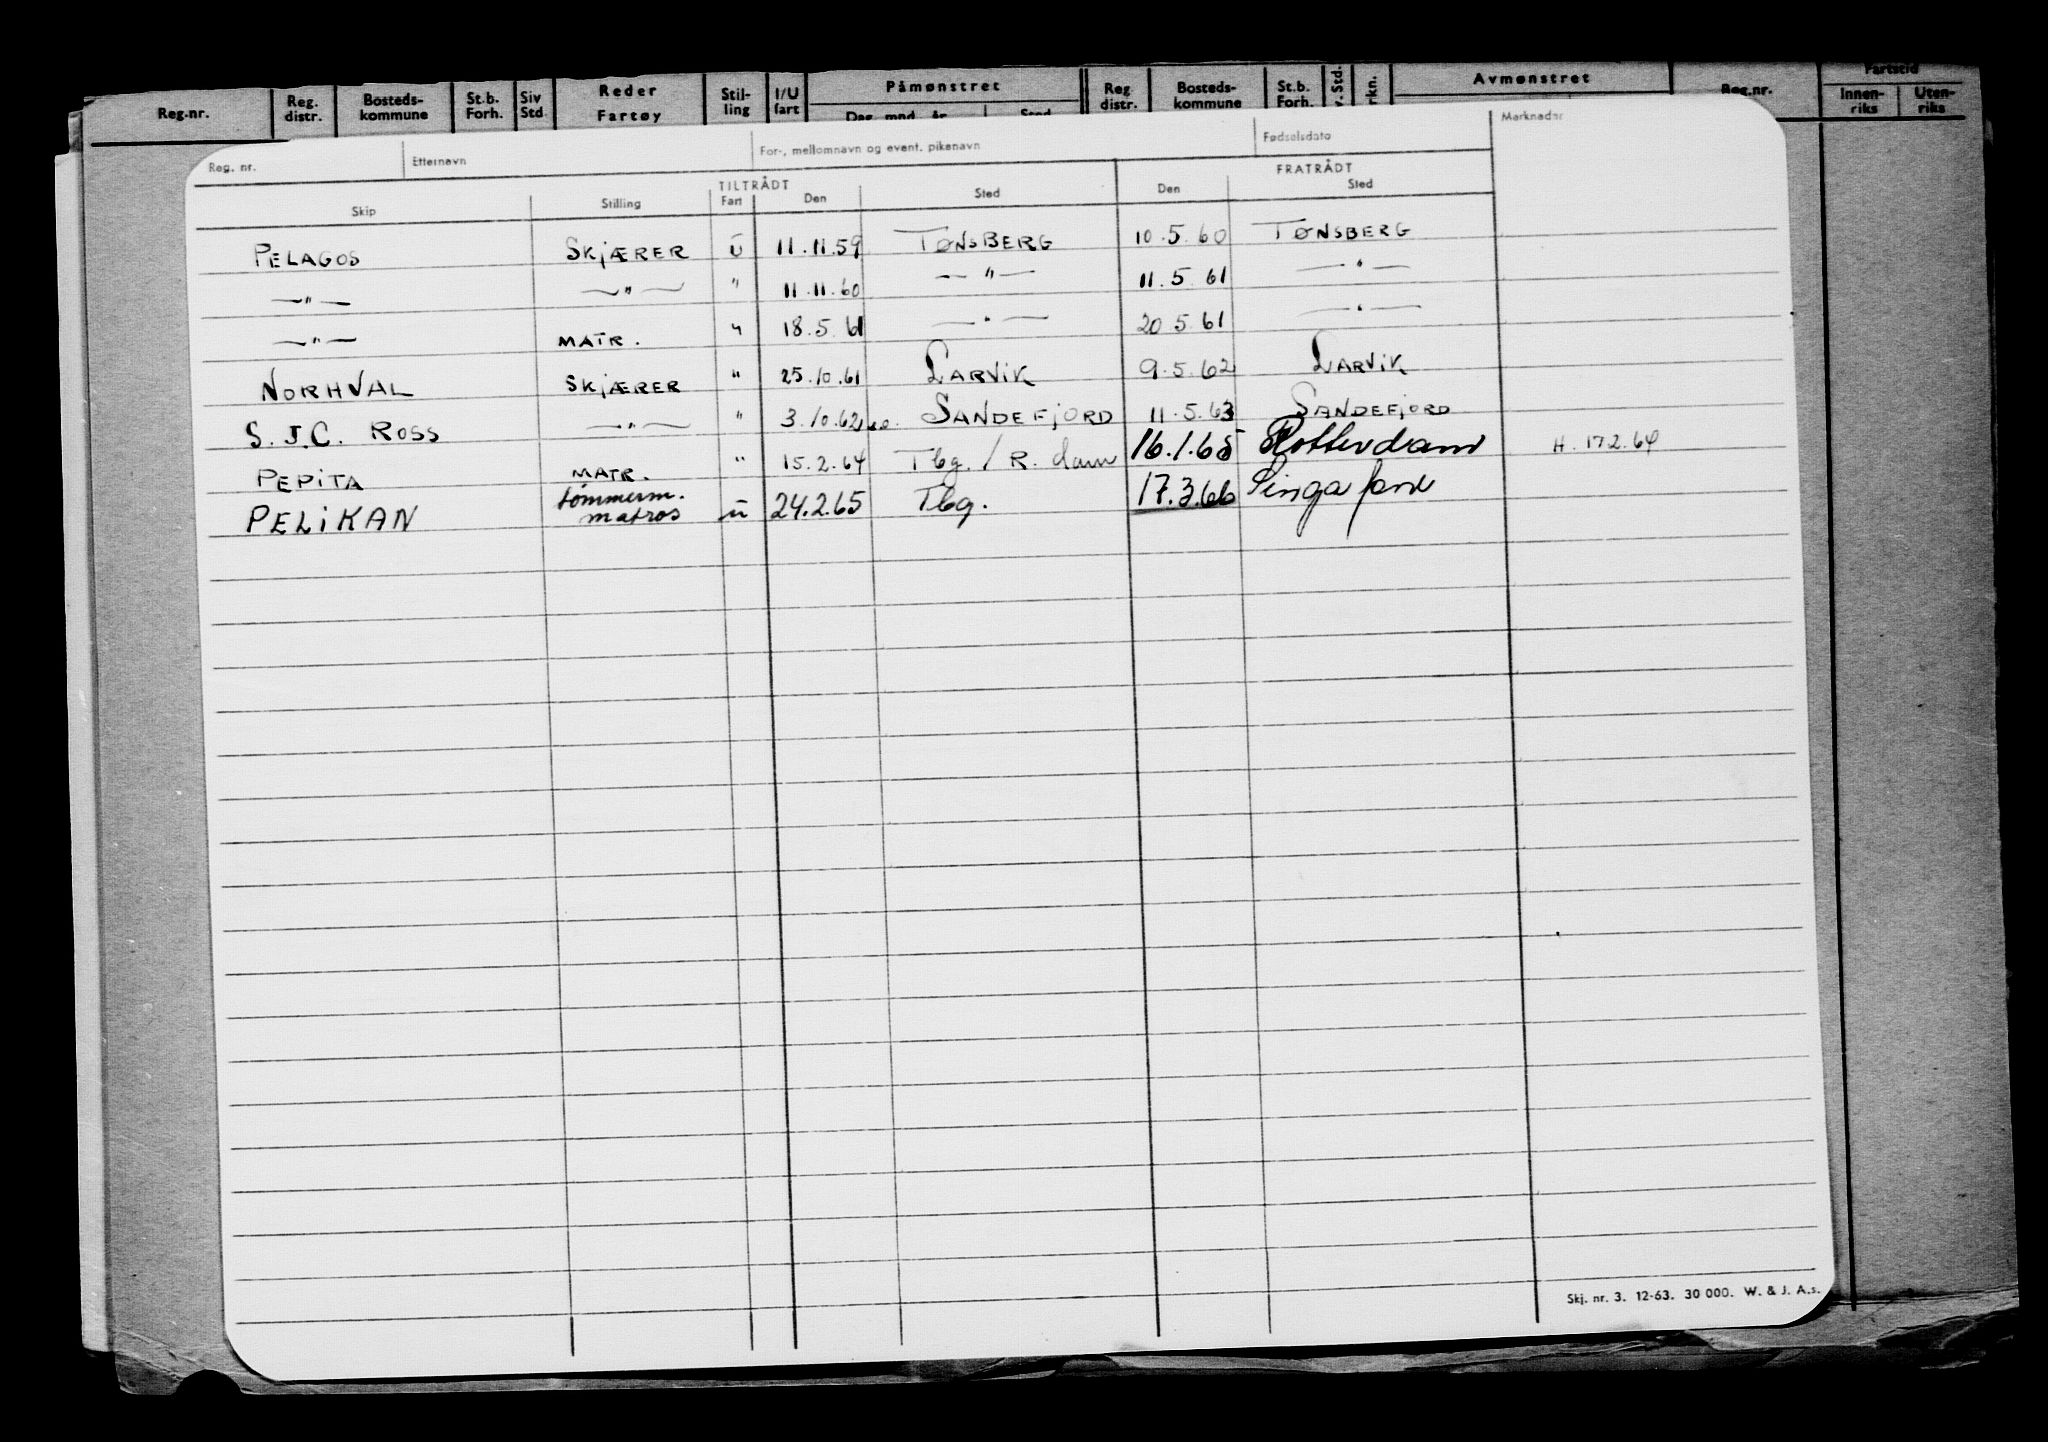 Reg.nr. Reg. distr. Bosteds- kommune St.b. Forh. Siv Std Reder Fartøy Stil- ling I/U fart Påmønstret Dag mnd. år Sted Reg distr. Bosteds- kommune St.b. Forh. v. Std. rkn. Avmønstret Reg.nr. Fartstid Innen- riks Uten- riks
Reg. nr. Etternavn For-, mellomnavn og event. pikenavn Fødselsdato Merknader
TILTRÅDT FRATRÅDT
Skip Stilling Fart Den Sted Den Sted
PELAGOS SKJÆRER U 11.11.59 TØNSBERG 10.5.60 TØNSBERG
—"— —"— " 11.11.60 —"— 11.5.61 —"—
—"— MATR. " 18.5.61 —"— 20.5.61 —"—
NORHVAL SKJÆRER " 25.10.61 LARVIK 9.5.62 LARVIK
S.J.C. ROSS —"— " 3.10.62 SANDEFJORD 11.5.63 SANDEFJORD
PEPITA MATR. " 15.2.64 Tbg. / R.dam 16.1.65 Rotterdam H. 17.2.64
PELIKAN tømmerm. matros u 24.2.65 Tbg. 17.3.66 Singapore
Skj. nr. 3. 12-63. 30 000. W. & J. A.s.